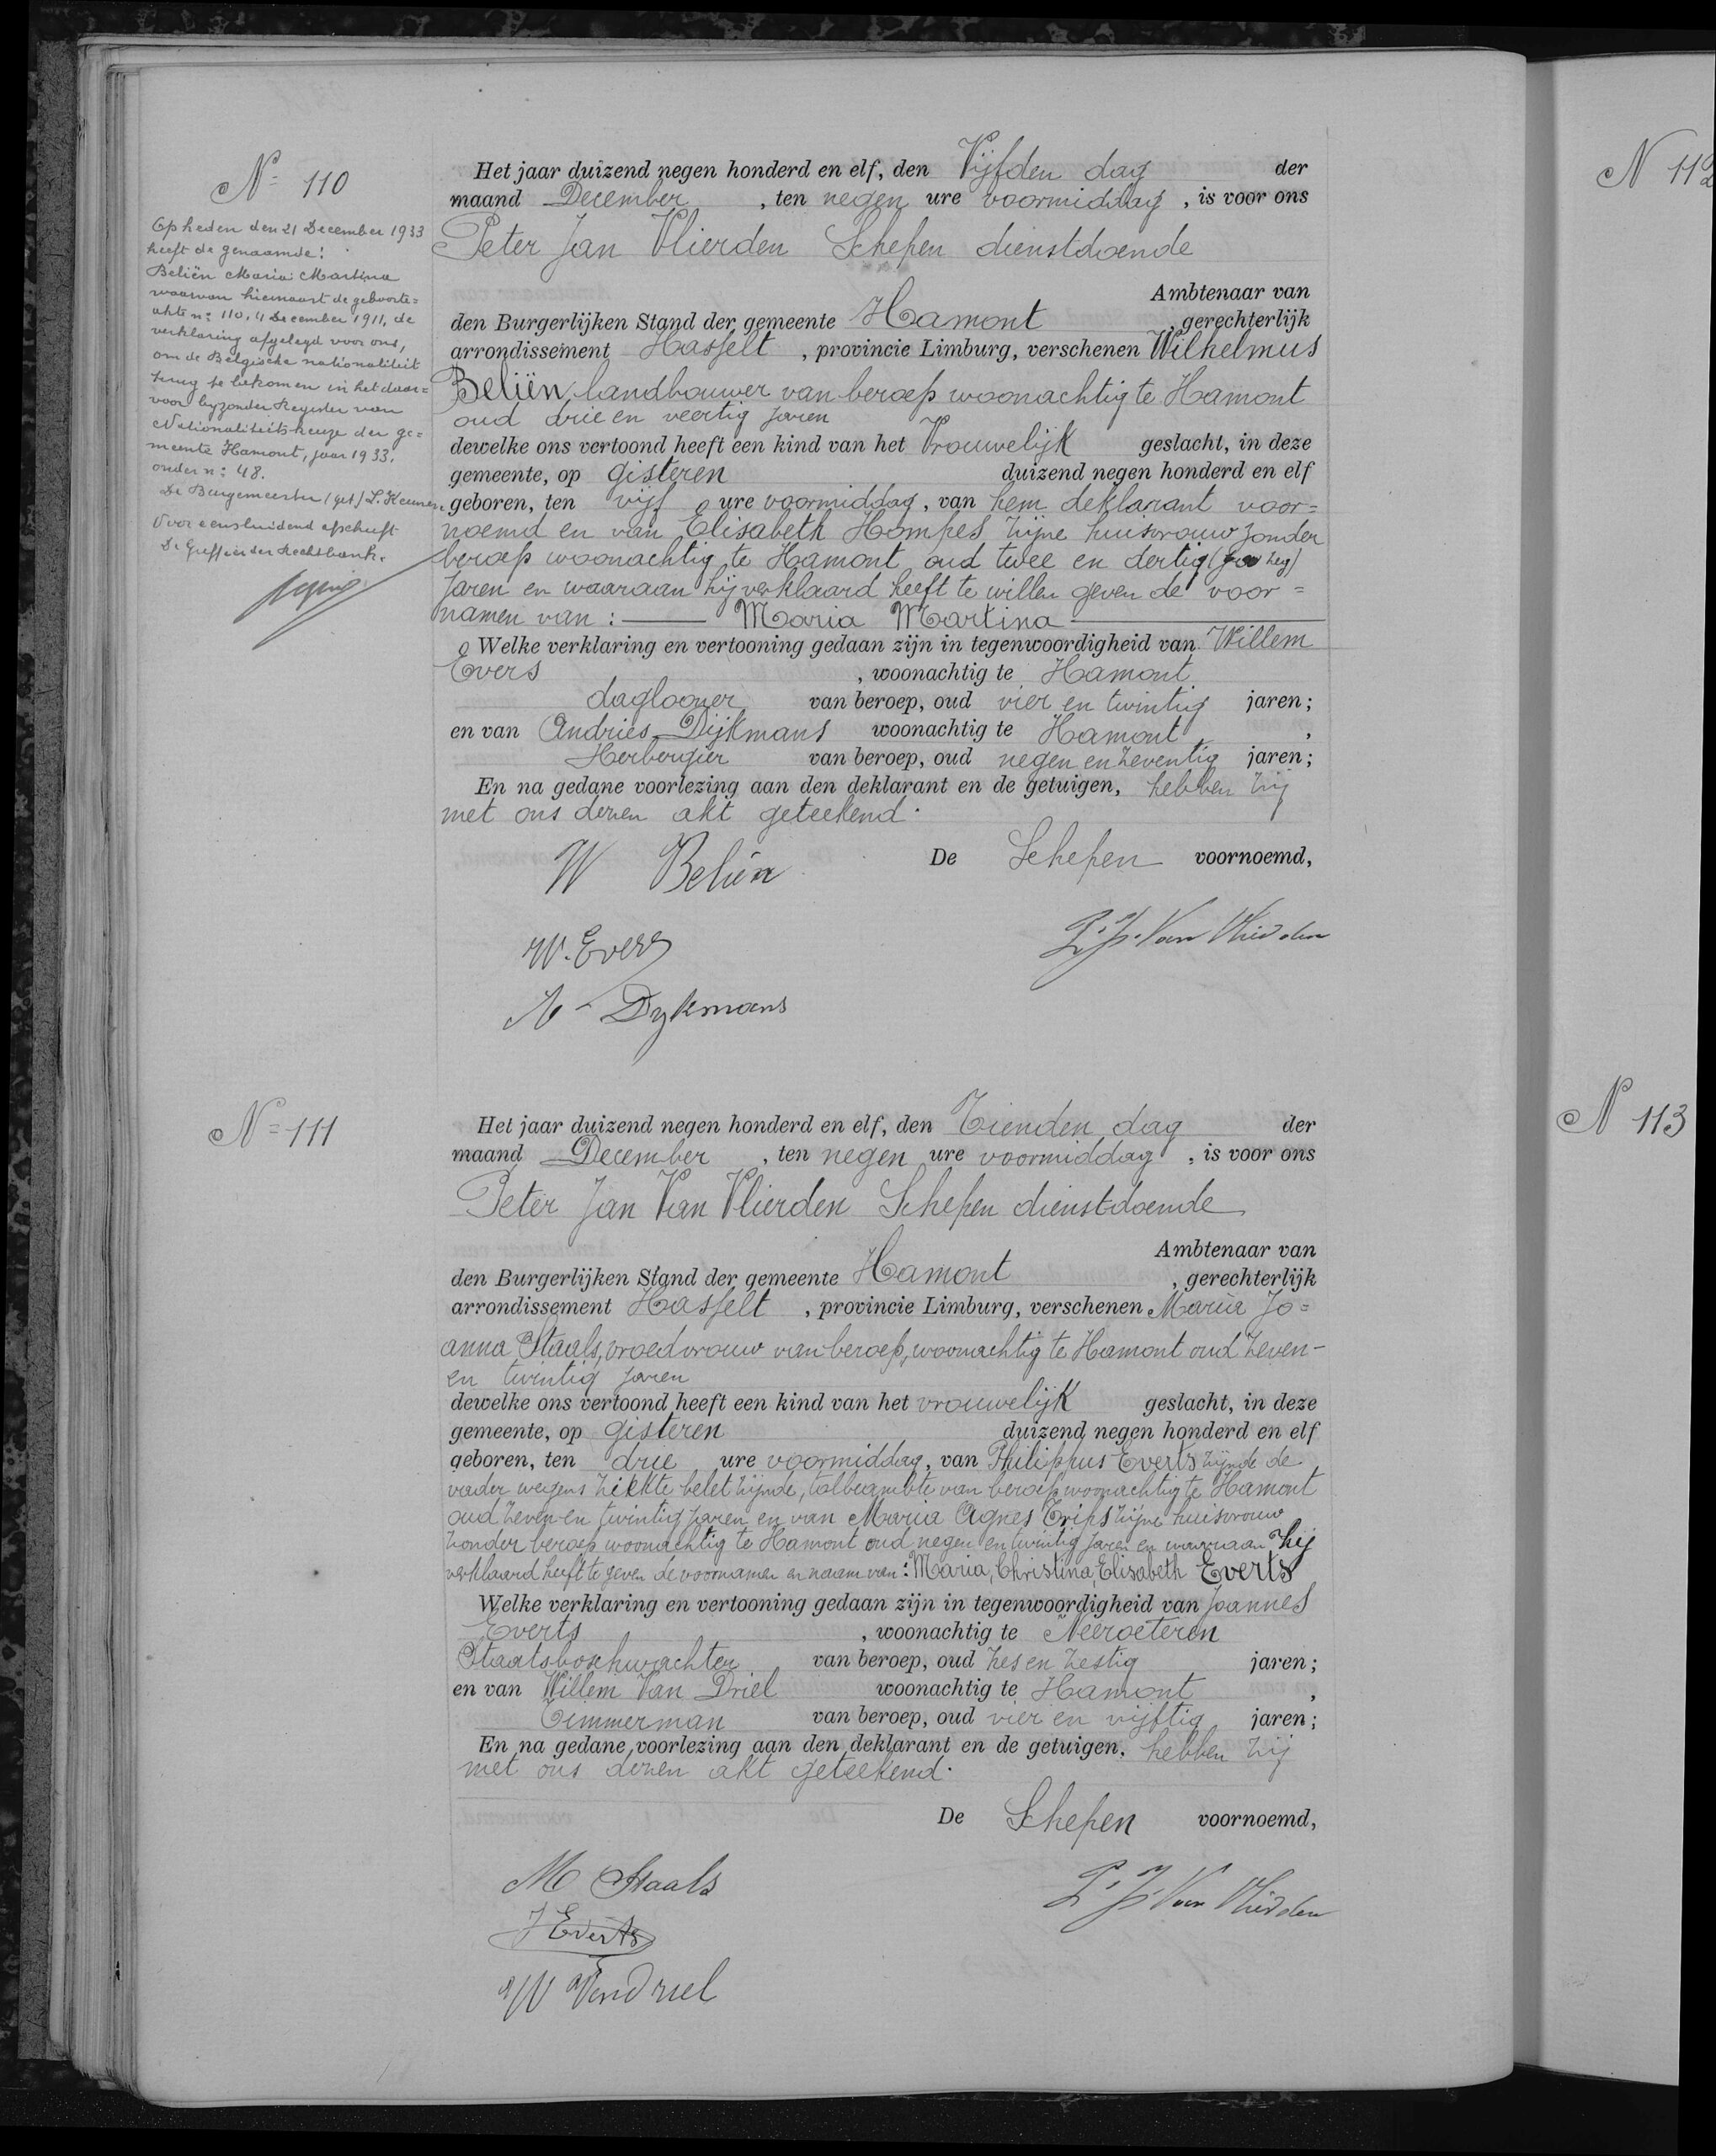 N= 110
Op heden den 21 December 1933
heeft de genaamde:
Beliën Maria Martina
waarvan hiernaast de geboorte=
akte n: 110, 4 December 1911, de
verklaring afgelegd voor ons,
om de Belgische nationaliteit
terug te bekomen in het daar=
voor byzonder Register van
Nationaliteitskeuze der ge=
meente Hamont, jaar 1933.
onder n: 48.
De Burgemeester (get) L. Keunen
Voor eensluidend afschrift
De Greffier der Rechtbank.
Het jaar duizend negen honderd en elf, den Vijfden dag der
maand December , ten negen ure voormiddag , is voor ons
Peter Jan Vlierden Schepen dienstdoende
Ambtenaar van
den Burgerlijken Stand der gemeente Hamont , gerechterlijk
arrondissement Hasselt , provincie Limburg, verschenen Wilhelmus
Beliën, landbouwer van beroep woonachtig te Hamont
oud drie en veertig jaren
dewelke ons vertoond heeft een kind van het Vrouwelijk geslacht, in deze
gemeente, op gisteren duizend negen honderd en elf
geboren, ten vijf ure voormiddag, van hem deklarant voor=
noemd en van Elisabeth Hompes zijne huisvrouw zonder
beroep woonachtig te Hamont oud twee en dertig
jaren en waaraan hij verklaard heeft te willen geven de voor=
namen van : Maria Martina
Welke verklaring en vertooning gedaan zijn in tegenwoordigheid van Willem
Evers , woonachtig te Hamont
daglooner van beroep, oud vier en twintig jaren;
en van Andries Dijkmans woonachtig te Hamont ,
Herbergier van beroep, oud negen en zeventig jaren;
En na gedane voorlezing aan den deklarant en de getuigen, hebben zij
met ons dezen akt geteekend.
De Schepen voornoemd,
W Beliën
P. J. Van Vlierden
W. Evers
A Dykmans
N= 111
Het jaar duizend negen honderd en elf, den Tienden dag der
maand December , ten negen ure voormiddag , is voor ons
Peter Jan Van Vlierden Schepen dienstdoende
Ambtenaar van
den Burgerlijken Stand der gemeente Hamont , gerechterlijk
arrondissement Hasselt , provincie Limburg, verschenen Maria Jo=
anna Staals, vroedvrouw van beroep, woonachtig te Hamont oud zeven-
en twintig jaren
dewelke ons vertoond heeft een kind van het vrouwelijk geslacht, in deze
gemeente, op gisteren duizend negen honderd en elf
geboren, ten drie ure voormiddag, van Philippus Everts zijnde de
vader wegens ziekte belet zijnde, tolbeambte van beroep woonachtig te Hamont
oud zeven en twintig jaren en van Maria Agnes Trips zijne huisvrouw
zonder beroep woonachtig te Hamont oud negen en twintig jaren en waaraan hij
verklaard heeft te geven de voornamen en naam van : Maria, Christina, Elisabeth Everts
Welke verklaring en vertooning gedaan zijn in tegenwoordigheid van Joannes
Everts , woonachtig te Neeroeteren
Staatsboschwachter van beroep, oud zes en zestig jaren;
en van Willem Van Driel woonachtig te Hamont ,
Timmerman van beroep, oud vier en vijftig jaren;
En na gedane voorlezing aan den deklarant en de getuigen, hebben zij
met ons dezen akt geteekend.
De Schepen voornoemd,
M Staals
P. J. Van Vlierden
J Everts
W Vandriel
N 112
N 113